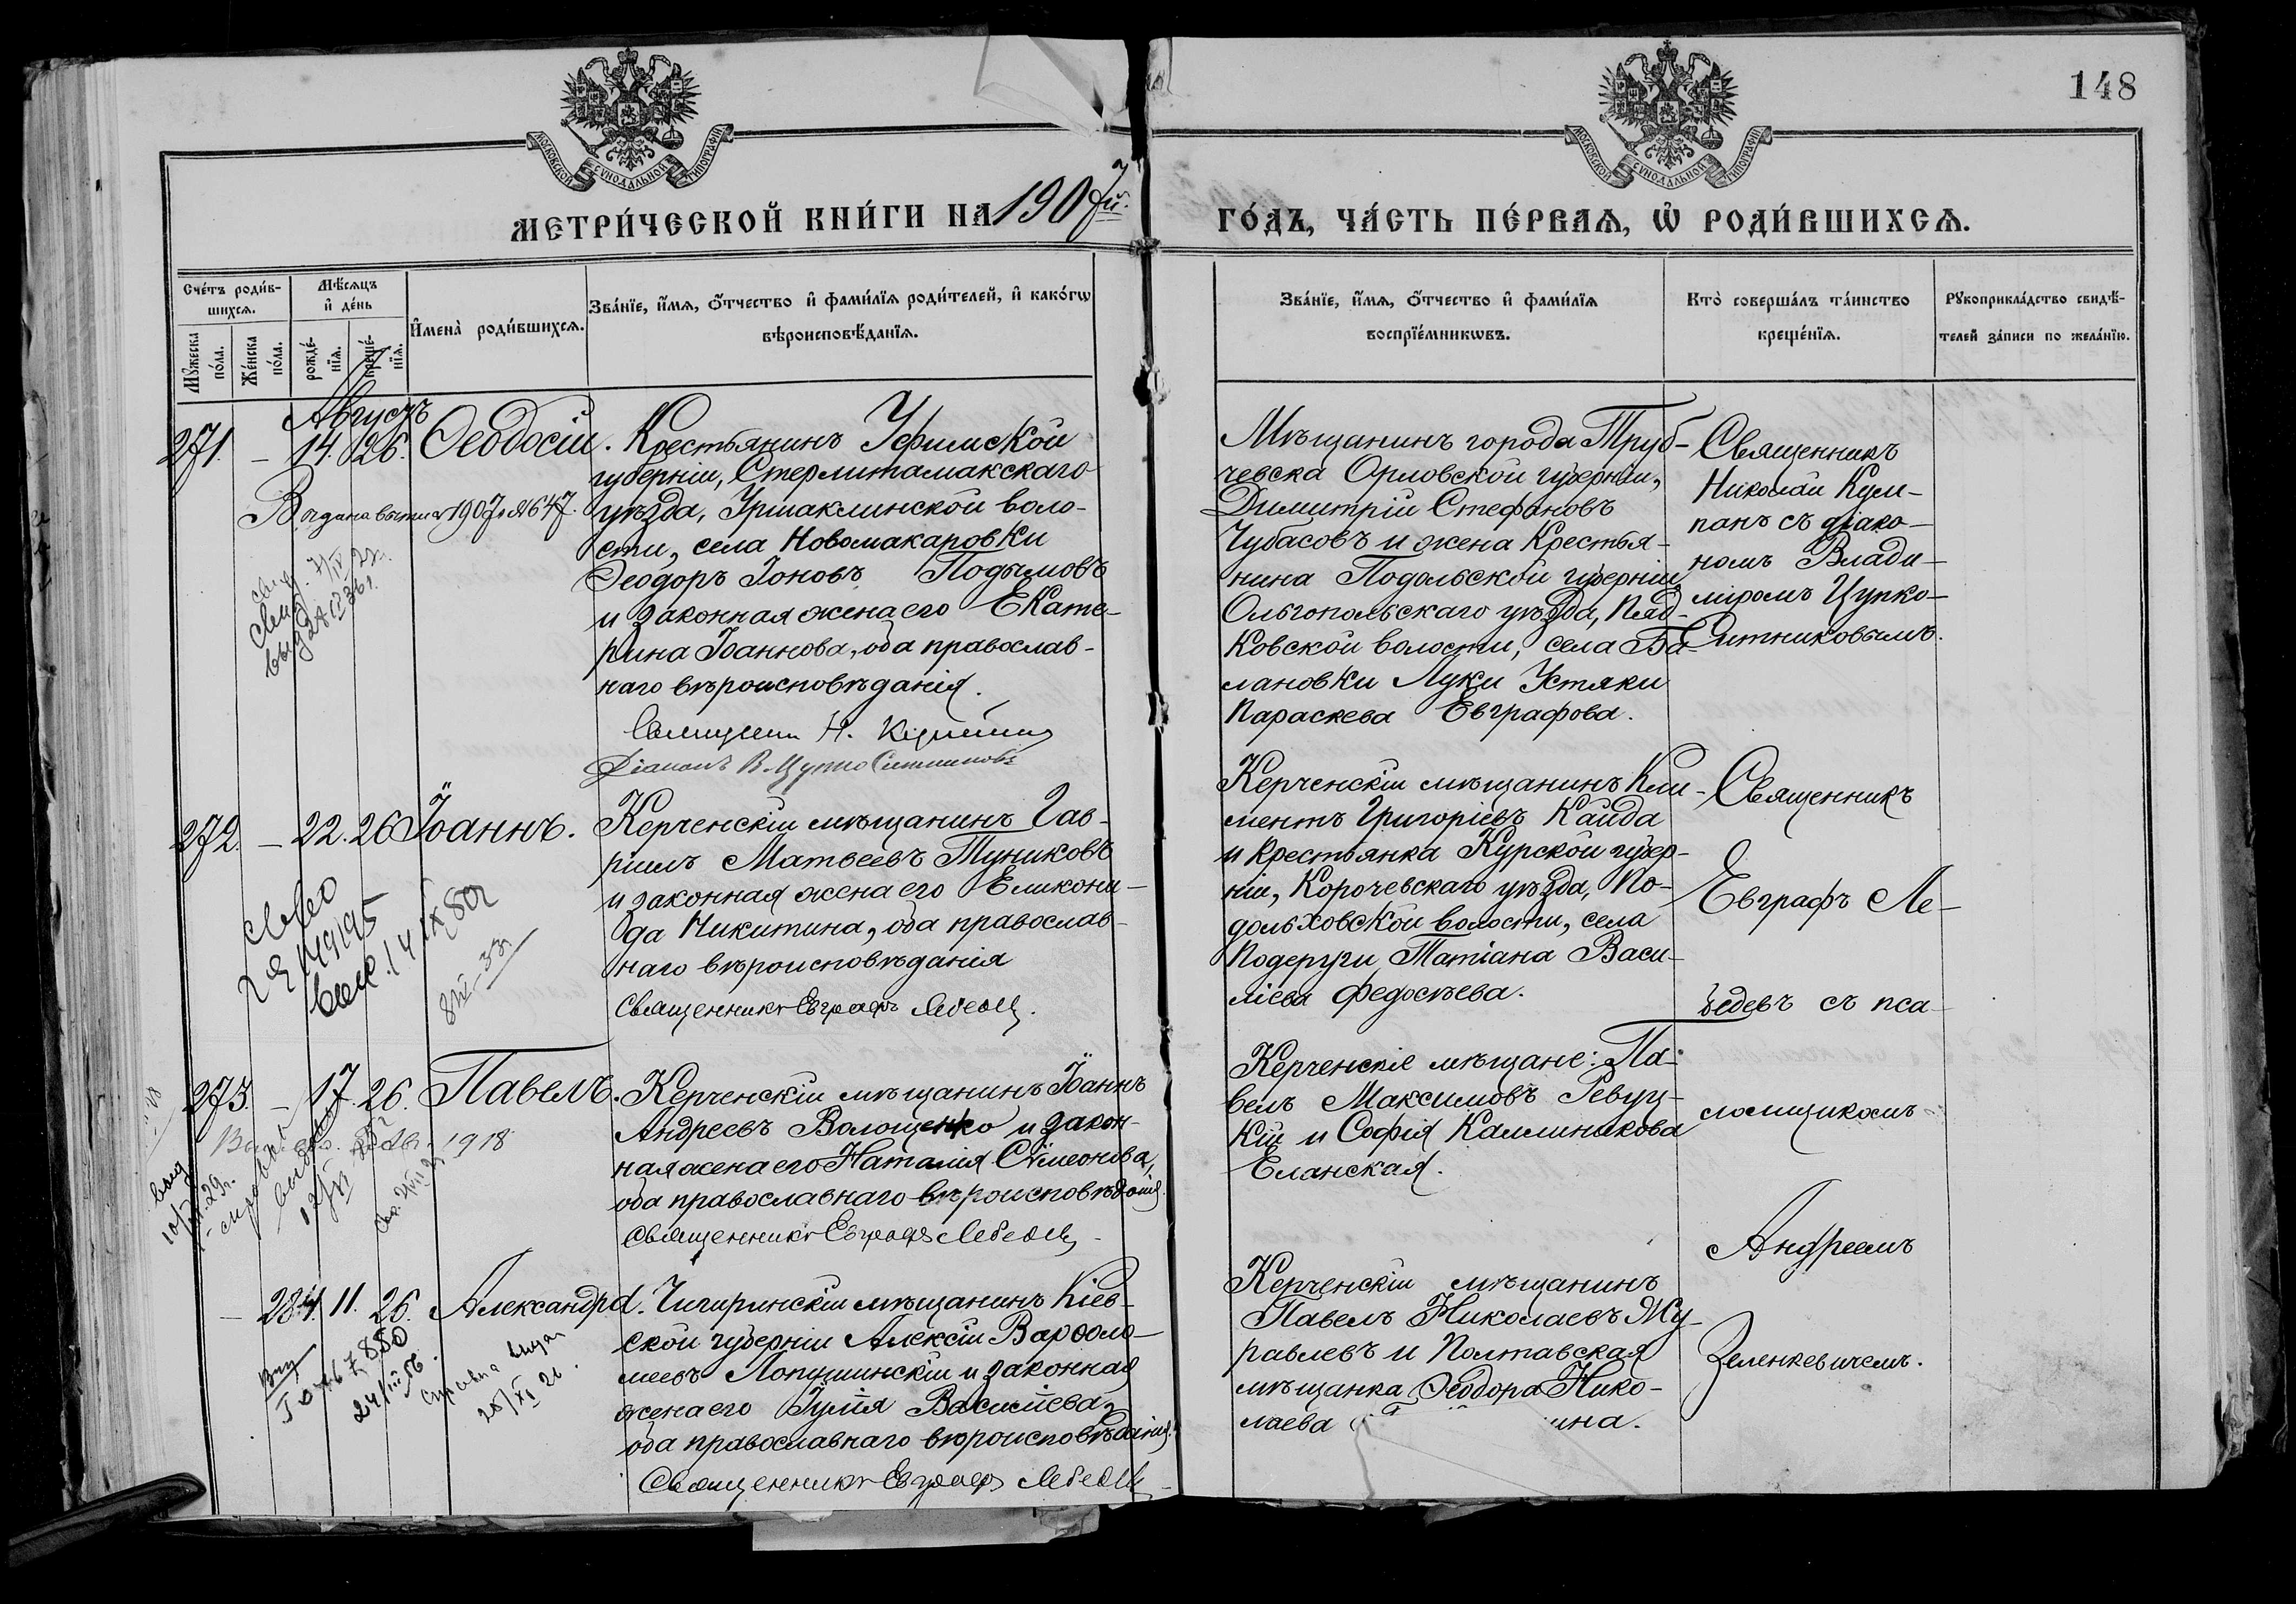 148
МОСКОВСКОЙ СѴНОДАЛЬНОЙ ТИПОГРАФІИ
МОСКОВСКОЙ СѴНОДАЛЬНОЙ ТИПОГРАФІИ
МЕТРИ́ЧЕСКОЙ КНИ́ГИ НА 1907й.
ГО́ДЪ, ЧА́СТЬ ПЕ́РВАѦ, Ѡ҆ РОДИ́ВШИХСѦ.
Сче́тъ роди́в-
шихсѧ.
Мѹ́жеска
по́ла.
Же́нска
по́ла.
Мѣ́сѧцъ
и҆ де́нь
рожде́-
нїѧ.
креще́-
нїѧ.
И҆мена̀ роди́вшихсѧ.
Зва́нїе, и҆́мѧ, ѻ҆́тчество и҆ фами́лїѧ роди́телей, и҆ како́гѡ
вѣроисповѣ́данїѧ.
Зва́нїе, и҆́мѧ, ѻ҆́тчество и҆ фами́лїѧ
воспрїе́мникѡвъ.
Кто̀ соверша́лъ та́инство
креще́нїѧ.
Рѹкоприкла́дство свидѣ́-
телей за́писи по жела́нїю.
Августъ
271. – 14. 26. Ѳеодосій.
1907 № 647.
Крестьянинъ Уфимской
губерніи, Стерлитамакскаго
уѣзда, Уршаклинской воло-
сти, села Новомакаровки
Ѳеодоръ Іоновъ Подымовъ
и законная жена его Екате-
рина Іоаннова, оба православ-
наго вѣроисповѣданія.
Священникъ Н.
Діаконъ В. Цупко Ситниковъ
Мѣщанинъ города Труб-
чевска Орловской губерніи,
Димитрій Стефановъ
Чубасовъ и жена крестья-
нина Подольской губерніи,
Ольгопольскаго уѣзда, Пяд-
ковской волости, села Ба-
лановки Луки Устяки
Параскева Евграфова.
Священникъ
Николай Кум-
панъ съ діако-
номъ Влади-
міромъ Цупко-
Ситниковымъ.
272. – 22. 26 Іоаннъ.
Керченскій мѣщанинъ Гав-
ріилъ Матвеевъ Туниковъ
и законная жена его Еликони-
да Никитина, оба православ-
наго вѣроисповѣданія
Священникъ Евграфъ Лебедевъ.
Керченскій мѣщанинъ Кли-
ментъ Григоріевъ Кайда
и крестьянка Курской губер-
ніи, Корочевскаго уѣзда, По-
дольховской волости, села
Подерги Татіана Васи-
ліева Федосѣева.
Священникъ
Евграфъ Ле-
бедевъ съ пса-
273. – 17. 26. Павелъ.
1918
Керченскій мѣщанинъ Іоаннъ
Андреевъ Волощенко и закон-
ная жена его Наталія Сѵмеонова,
оба православнаго вѣроисповѣданія.
Священникъ Евграфъ Лебедевъ
Керченскіе мѣщане: Па-
велъ Максимовъ Ревуц-
кій и Софія Каллиникова
Еланская.
ломщикомъ
Андреемъ
– 284. 11. 26. Александра.
Чигиринскій мѣщанинъ Кіев-
ской губерніи Алексій Варѳоло-
меевъ Лопушинскій и законная
жена его Іулія Василіева,
оба православнаго вѣроисповѣданія.
Священникъ Евграфъ Лебедевъ
Керченскій мѣщанинъ
Павелъ Николаевъ Жу-
равлевъ и Полтавская
мѣщанка Ѳеодора Нико-
лаева
ина.
Зеленкевичемъ.